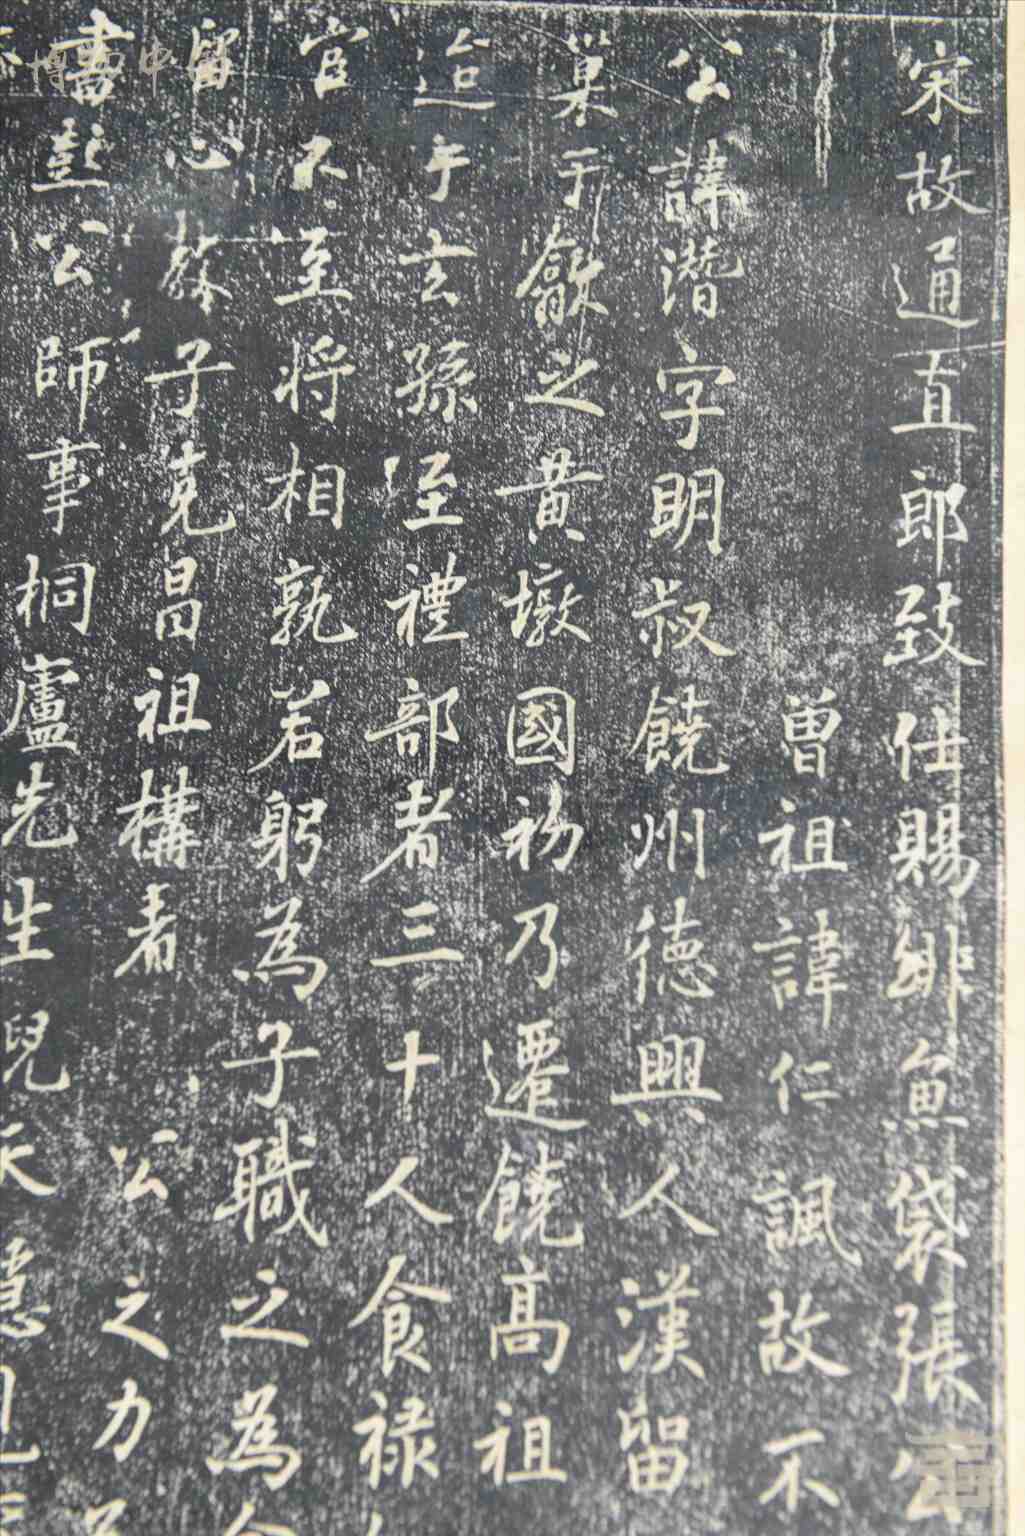 宋故通直郎致仕賜緋魚袋張公
曾祖諱仁諷故不
公諱潛字明叔饒州德興人漢留
葉于歙之黄墩國初乃遷饒高祖
迨于玄孫至禮部者三十人食禄
官不至将相孰若躬為子職之為
留心 子克昌祖構者 公之力
書彭公師事桐廬先生倪天隱
博 中